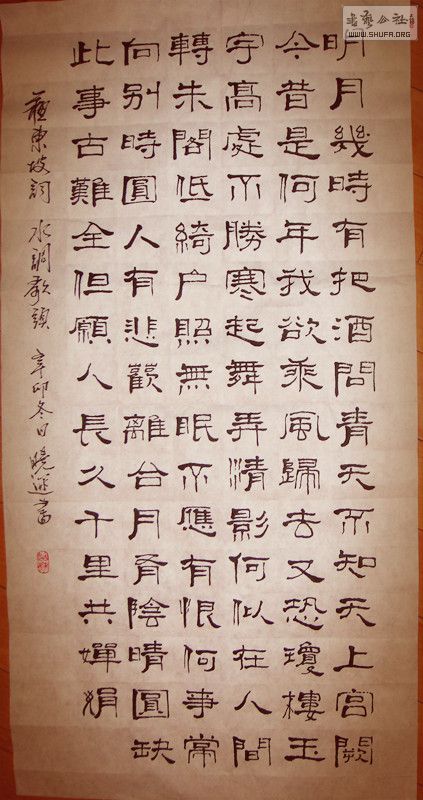 書藝公社
WWW.SHUFA.ORG
明月幾時有把酒問青天不知天上宮闕
今昔是何年我欲乘風歸去又恐瓊樓玉
宇高處不勝寒起舞弄清影何似在人間
轉朱閣低綺户照無眠不應有恨何事常
向别時圓人有悲歡離合月有陰晴圓缺
此事古難全但願人長久千里共嬋娟
蘇東坡詞 水調歌頭 辛卯冬日曉書